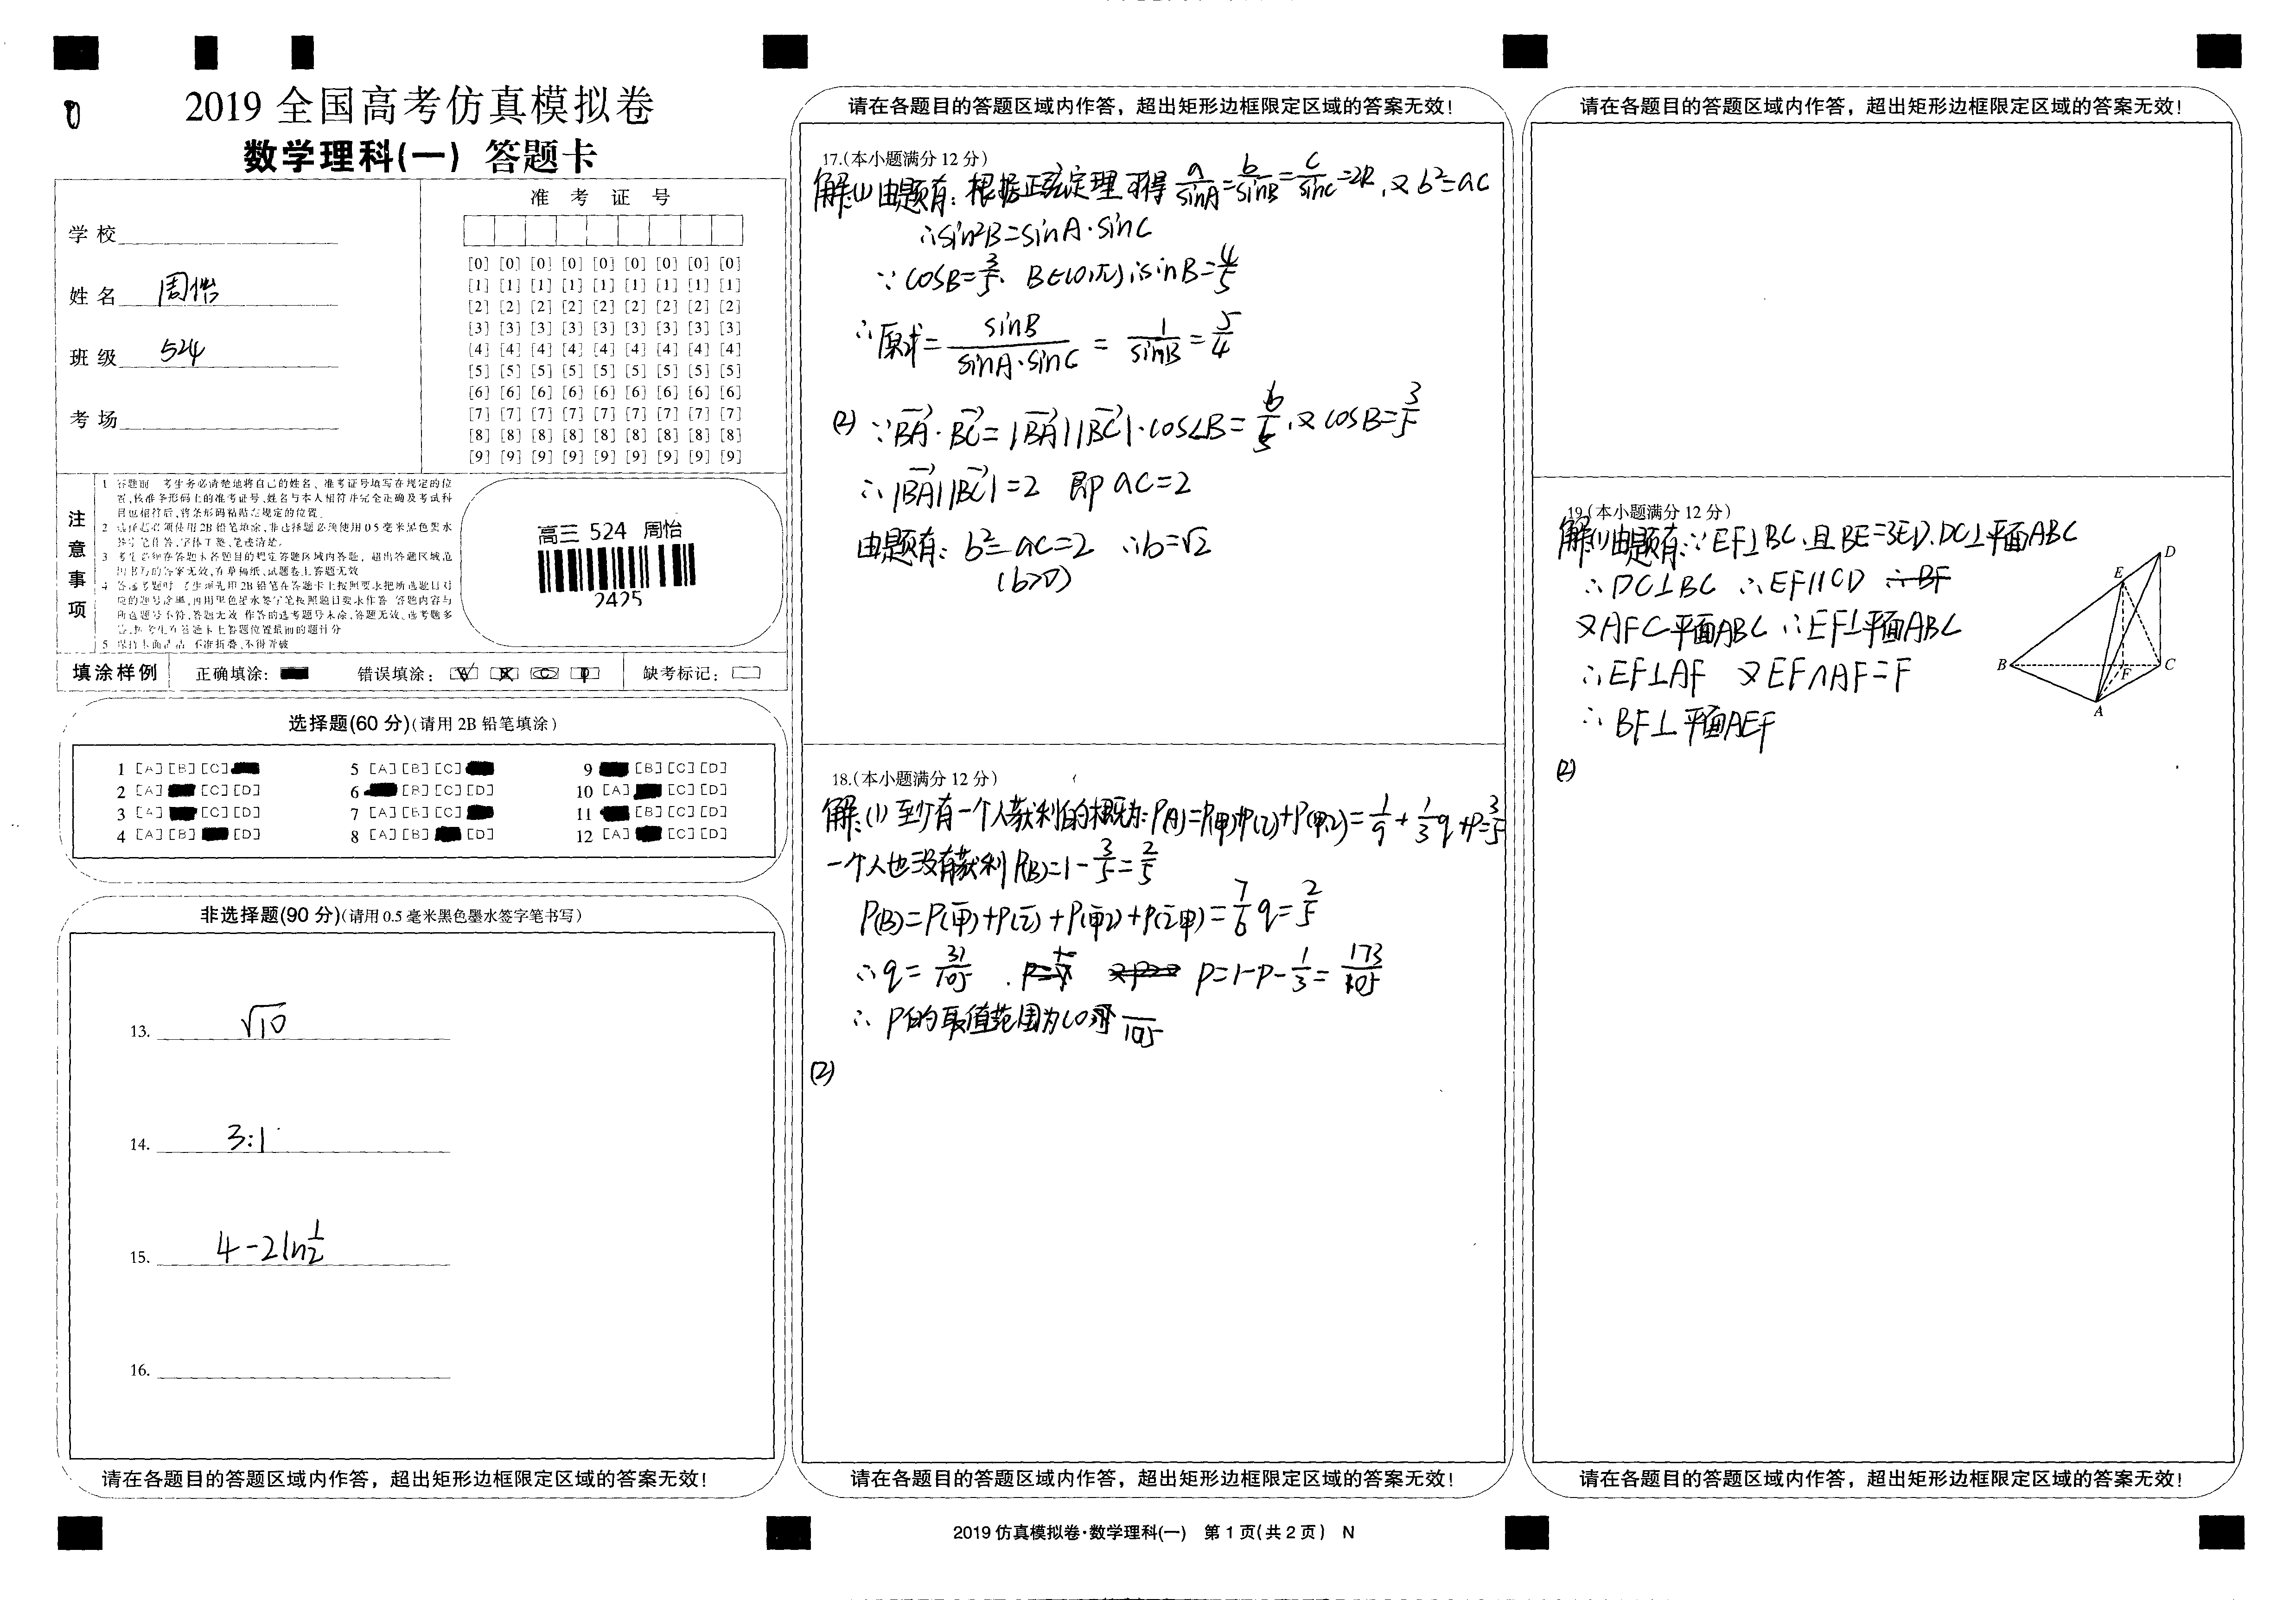 2019 全国高考仿真模拟卷
数学理科(一) 答题卡
学校
姓名 周怡
班级 524
考场
准考证号
[0] [0] [0] [0] [0] [0] [0] [0] [0]
[1] [1] [1] [1] [1] [1] [1] [1] [1]
[2] [2] [2] [2] [2] [2] [2] [2] [2]
[3] [3] [3] [3] [3] [3] [3] [3] [3]
[4] [4] [4] [4] [4] [4] [4] [4] [4]
[5] [5] [5] [5] [5] [5] [5] [5] [5]
[6] [6] [6] [6] [6] [6] [6] [6] [6]
[7] [7] [7] [7] [7] [7] [7] [7] [7]
[8] [8] [8] [8] [8] [8] [8] [8] [8]
[9] [9] [9] [9] [9] [9] [9] [9] [9]
注意事项
1 答题前 考生务必请楚地将自己的姓名、准考证号填写在规定的位
置,核准条形码上的准考证号、姓名与本人相符并完全正确及考试科
目也相符后,将条形码粘贴在规定的位置。
2 选择题必须使用2B铅笔填涂,非选择题必须使用0 5毫米黑色墨水
签字笔作答,字体工整、笔迹清楚。
3 考生必须在答题卡各题目的规定答题区域内答题,超出答题区域范
围书写的答案无效,在草稿纸、试题卷上答题无效
5 保持卡面清洁 不准折叠、不得弄破
高三 524 周怡
2425
填涂样例 正确填涂: 错误填涂: 缺考标记:
选择题(60 分)(请用 2B 铅笔填涂)
1 [A] [B] [C] 5 [A] [B] [C] 9 [B] [C] [D]
2 [A] [C] [D] 6 [B] [C] [D] 10 [A] [C] [D]
3 [A] [C] [D] 7 [A] [B] [C] 11 [B] [C] [D]
4 [A] [B] [D] 8 [A] [B] [D] 12 [A] [C] [D]
非选择题(90 分)(请用 0.5 毫米黑色墨水签字笔书写)
13. √10
14. 3:1
15. 4-2ln1/2
16.
请在各题目的答题区域内作答,超出矩形边框限定区域的答案无效!
请在各题目的答题区域内作答,超出矩形边框限定区域的答案无效!
17.(本小题满分 12 分)
解:(1)由题有:根据正弦定理可得 a/sinA=b/sinB=c/sinC=2R,又b²=ac
∴sin²B=sinA·sinC
∵cosB=3/5, B∈(0,π)∴sinB=4/5
∴原式=sinB/(sinA·sinC)=1/sinB=5/4
(2) ∵BA·BC=|BA||BC|·cos∠B=6/5,又cosB=3/5
∴|BA||BC|=2 即 ac=2
由题有:b²=ac=2 ∴b=√2
(b>0)
18.(本小题满分 12 分)
解:(1)至少有一个人获利的概率为:P(A)=P(甲)+P(乙)+P(甲乙)=1/9+1/3q+P=3/5
一个人也没有获利P(B)=1-3/5=2/5
P(B)=P(甲)+P(乙)+P(甲乙)+P(乙甲)=7/6q=2/5
∴q=31/105 P=1-P-1/3=173/105
∴P的取值范围为(0
(2)
请在各题目的答题区域内作答,超出矩形边框限定区域的答案无效!
2019 仿真模拟卷·数学理科(一) 第 1 页(共 2 页) N
请在各题目的答题区域内作答,超出矩形边框限定区域的答案无效!
19.(本小题满分 12 分)
解:(1)由题有:∵EF⊥BC,且BE=3ED,DC⊥平面ABC
∴DC⊥BC ∴EF∥CD ∴BF
又AF⊂平面ABC ∴EF⊥平面ABC
∴EF⊥AF 又EF∩AF=F
∴BF⊥平面AEF
(2)
D
E
B
F
C
A
请在各题目的答题区域内作答,超出矩形边框限定区域的答案无效!